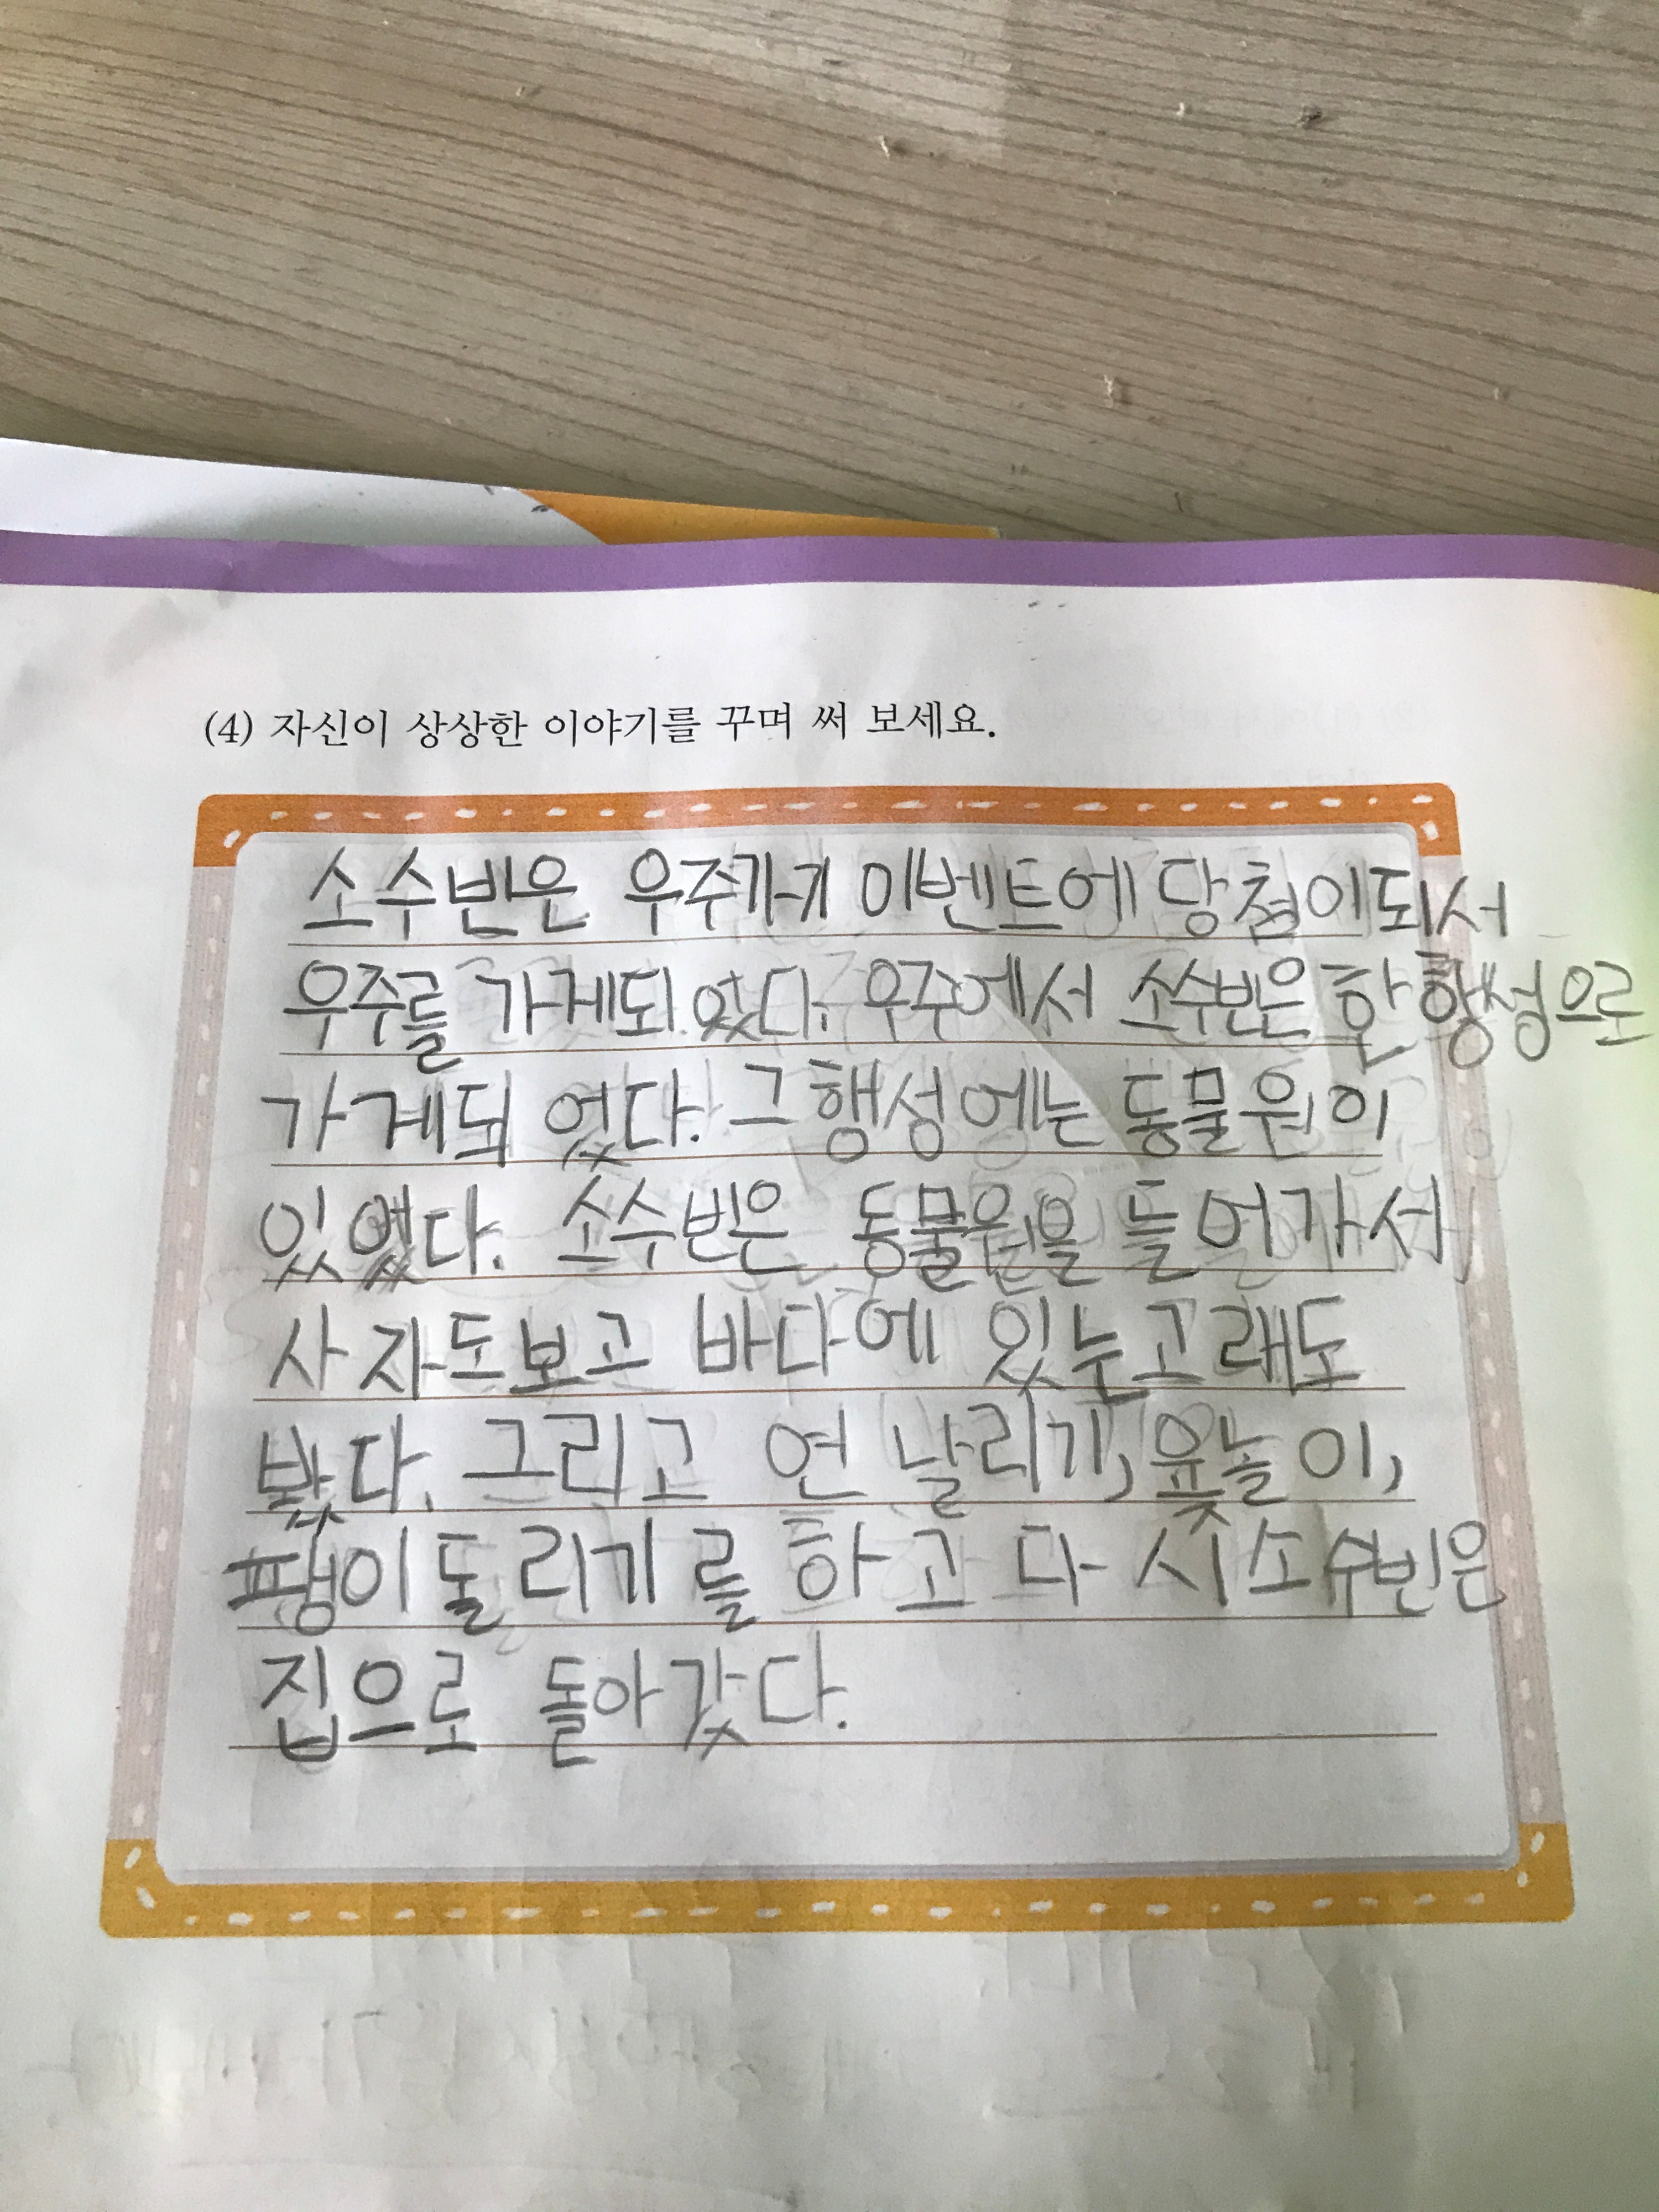 (4) 자신이 상상한 이야기를 꾸며 써 보세요.
소수빈은 우주가기 이벤트에 당첨이되서
우주를 가게되었다. 우주에서 소수빈은 한 행성으로
가게되었다. 그 행성에는 동물원이
있었다. 소수빈은 동물원을 들어가서
사자도보고 바다에 있는고래도
봤다. 그리고 연 날리기, 윷놀이,
팽이돌리기를 하고 다시소수빈은
집으로 돌아갔다.